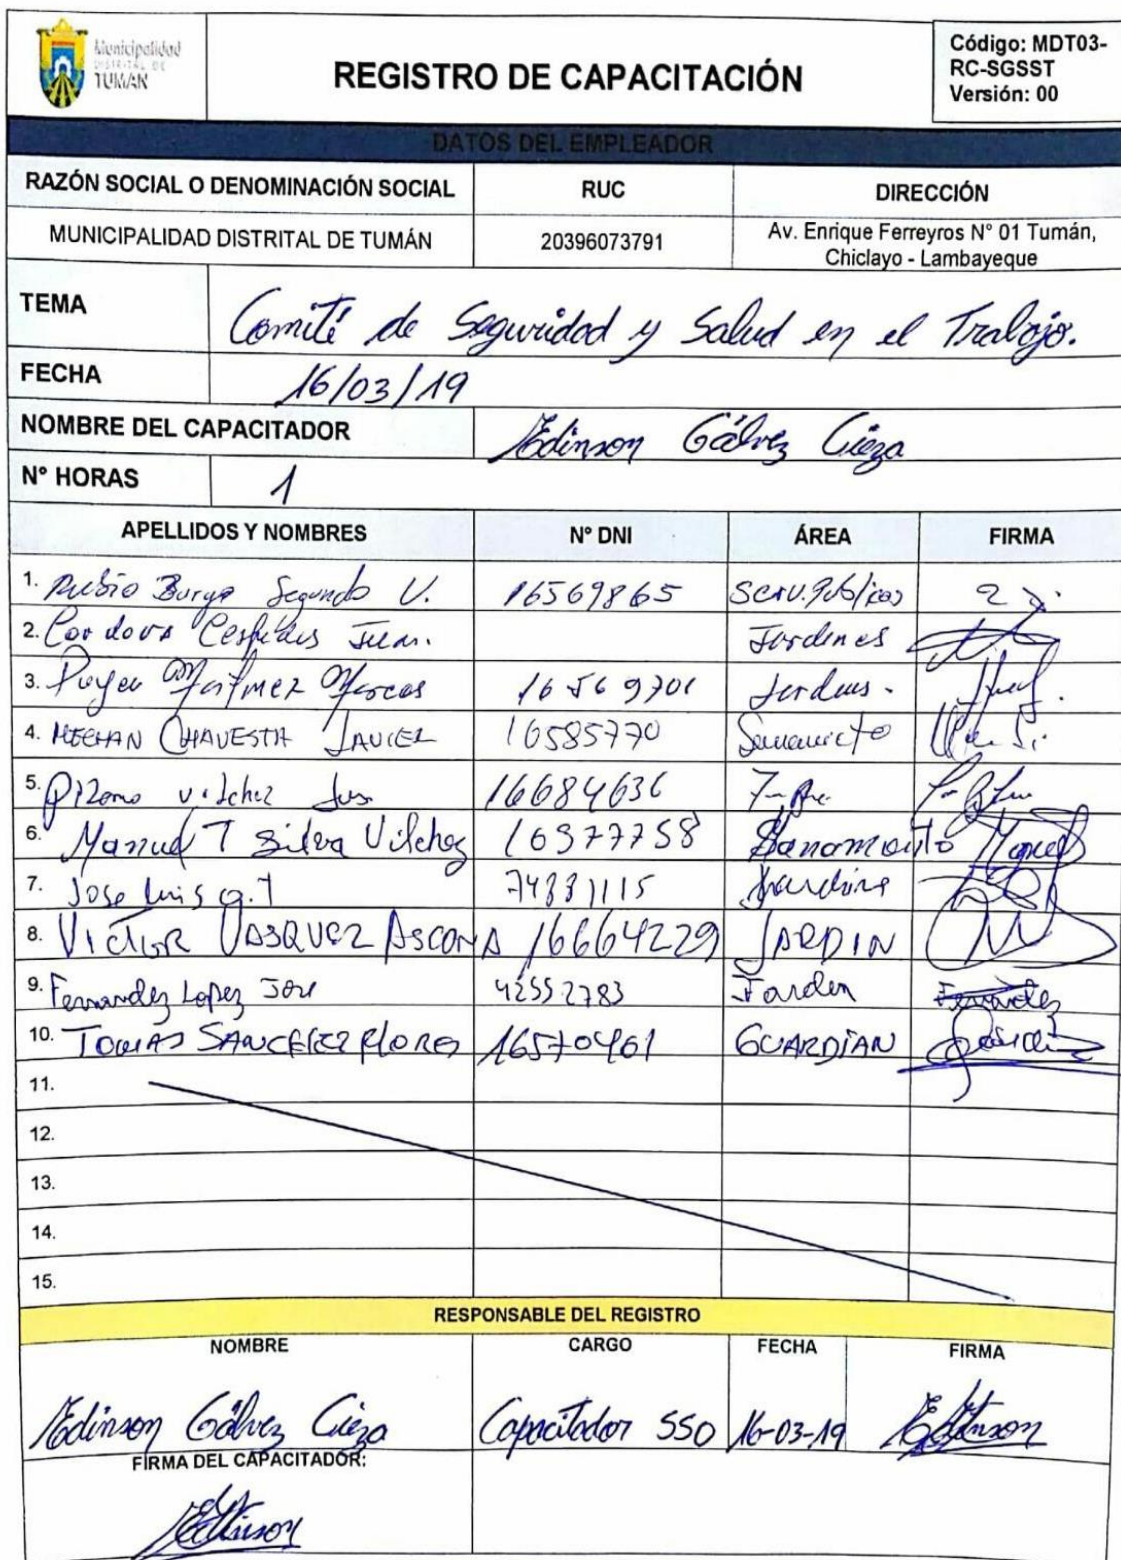 Municipalidad
DISTRITAL DE
TUMÁN
REGISTRO DE CAPACITACIÓN
Código: MDT03-
RC-SGSST
Versión: 00
DATOS DEL EMPLEADOR
RAZÓN SOCIAL O DENOMINACIÓN SOCIAL RUC DIRECCIÓN
MUNICIPALIDAD DISTRITAL DE TUMÁN 20396073791 Av. Enrique Ferreyros N° 01 Tumán,
Chiclayo - Lambayeque
TEMA Comité de Seguridad y Salud en el Trabajo.
FECHA 16/03/19
NOMBRE DEL CAPACITADOR Edinson Gálvez Cieza
N° HORAS 1
APELLIDOS Y NOMBRES N° DNI ÁREA FIRMA
1. Rubio Burga Segundo V. 16569865 Serv. Publicos
2. Cordova Cespedes Juan. Jardines
3. Puyen Martinez Marcos 16569701 Jardines.
4. MECHAN CHAVESTA JAVIER 16585770
5. Vilchez 16684636
6. Manuel T Silva Vilchez 16377758 Sanamiento Manuel
7. Jose Luis G.T 74331115 Jardine
8. VICTOR VASQUEZ ASCONA 16664229 JARDIN
9. Fernandez Lopez Jose 42552783 Jarden Fernandez
10. TOMAS SANCHEZ FLORES 16570461 GUARDIAN
11.
12.
13.
14.
15.
RESPONSABLE DEL REGISTRO
NOMBRE CARGO FECHA FIRMA
Edinson Gálvez Cieza Capacitador SSO 16-03-19 Edinson
FIRMA DEL CAPACITADOR:
Edinson